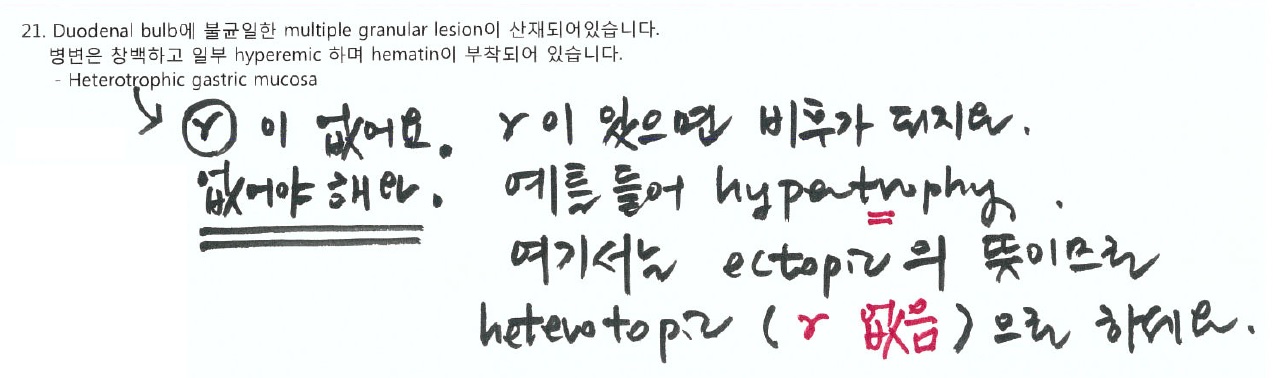 21. Duodenal bulb에 불균일한 multiple granular lesion이 산재되어있습니다.
병변은 창백하고 일부 hyperemic 하며 hematin이 부착되어 있습니다.
- Heterotrophic gastric mucosa
r이 없어요. r이 있으면 비후가 되지요.
없어야 해요. 예를 들어 hypertrophy.
여기서는 ectopic의 뜻이므로
heterotopic (r 없음)으로 하세요.